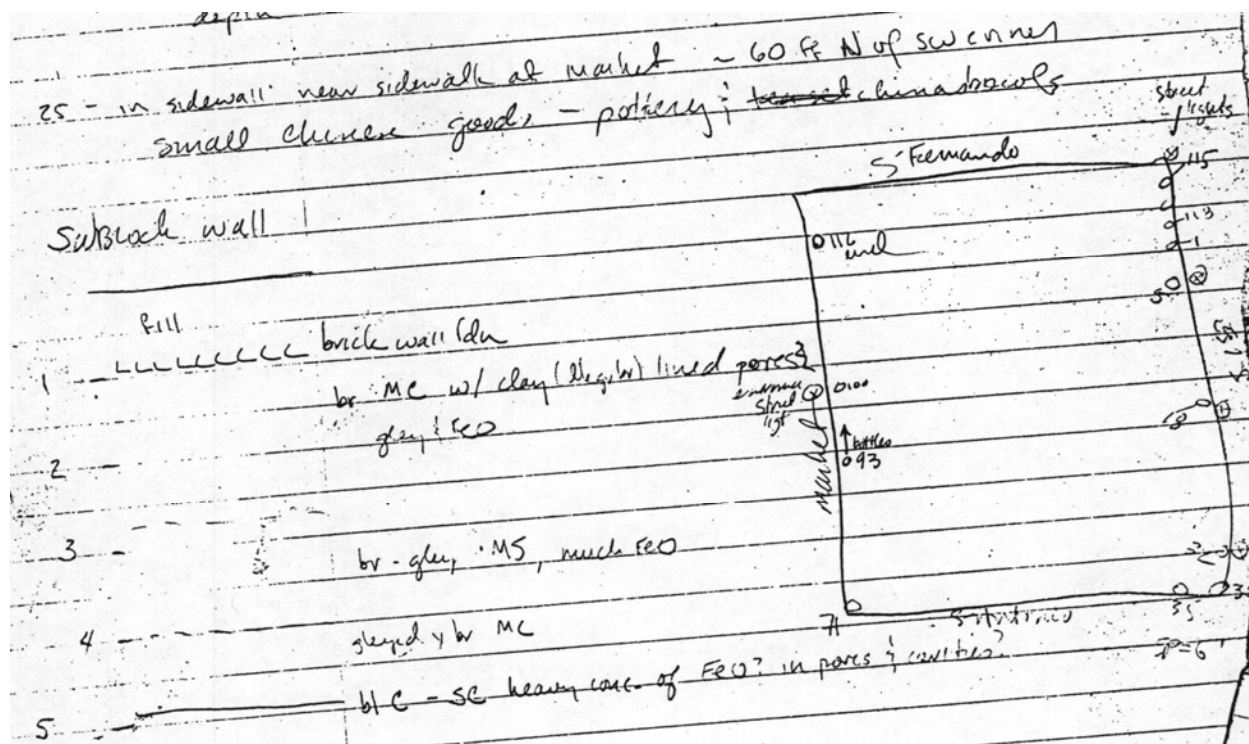 depth
25 - in sidewall near sidewalk at Market ~ 60 ft N of SW corner
small chinese goods - pottery & china bowls
Street
lights
S Fernando
115
SW Block wall
116
113
1
Fill
1 - LLLLLLLLL brick wall fdn
br MC w/ clay lined pores?
Street
0100
gley & FeO
bottles
Market
093
2 -
3 -
br - gley, MS, much FeO
4 -
gleyed y br MC
S Antonio
35
bl C - SC heavy conc. of FeO? in pores & cavities?
5 -